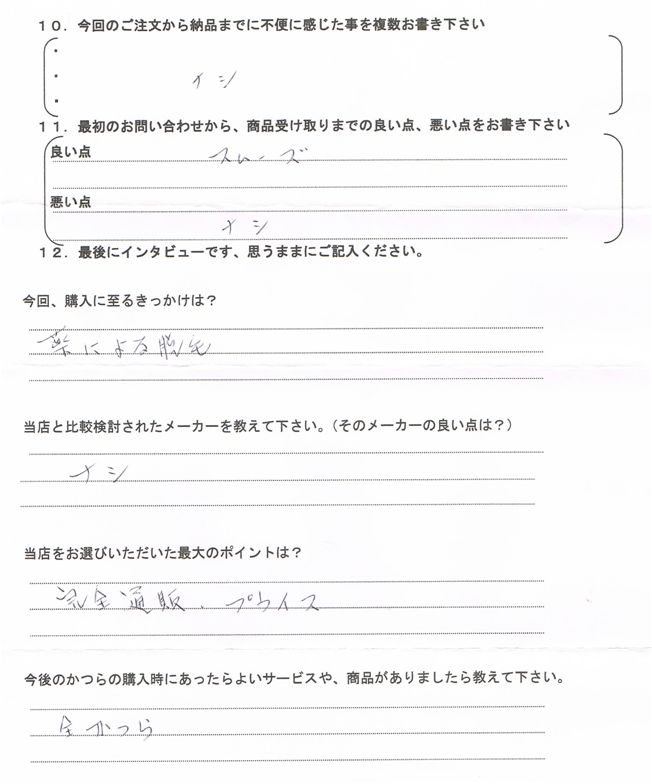 10．今回のご注文から納品までに不便に感じた事を複数お書き下さい
・
・ ナシ
・
11．最初のお問い合わせから、商品受け取りまでの良い点、悪い点をお書き下さい
良い点
スムーズ
悪い点
ナシ
12．最後にインタビューです、思うままにご記入ください。
今回、購入に至るきっかけは？
薬による脱毛
当店と比較検討されたメーカーを教えて下さい。（そのメーカーの良い点は？）
ナシ
当店をお選びいただいた最大のポイントは？
完全通販．プライス
今後のかつらの購入時にあったらよいサービスや、商品がありましたら教えて下さい。
全かつら